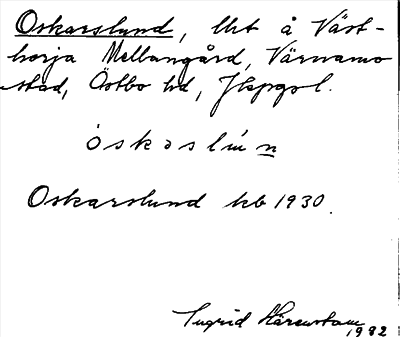 Oskarslund, lht å Väst-
horja Mellangård, Värnamo
stad, Östbo hd, Jkpgs l.
öskaslún
Oskarslund kb 1930.
Ingrid Härenstam
1982